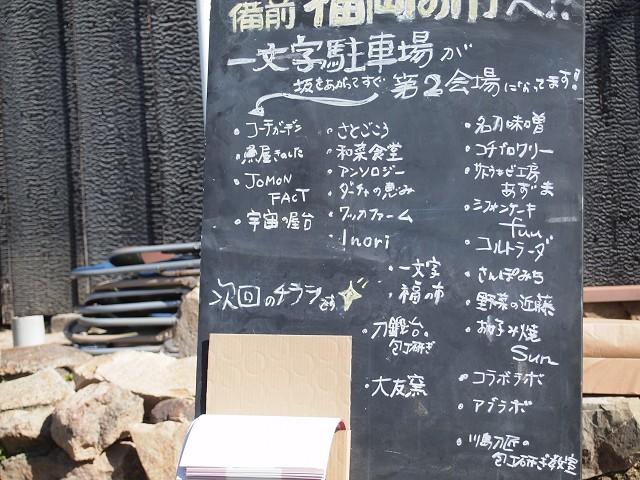 備前 福岡の市へ!!
一文字駐車場が
坂をあがってすぐ 第2会場になってます!!
・コーナーガーデン
・魚屋きのした
・JOMON
FACT
・宇宙の屋台
・さとごころ
・和菜食堂
・アンソロジー
・ダーチャの恵み
・ワッカファーム
・Inori
・一文字
・福の市
・刀鍛冶の
包丁研ぎ
・大友窯
・名刀味噌
・コチプロワリー
・サトウキビ工房
あずま
・シフォンケーキ
fuu
・コルトラーダ
・さんぽみち
・野菜の近藤
・お好み焼
Sun
・コラボラボ
・アブラボ
・川島刃匠の
包丁研ぎ教室
次回のチラシです